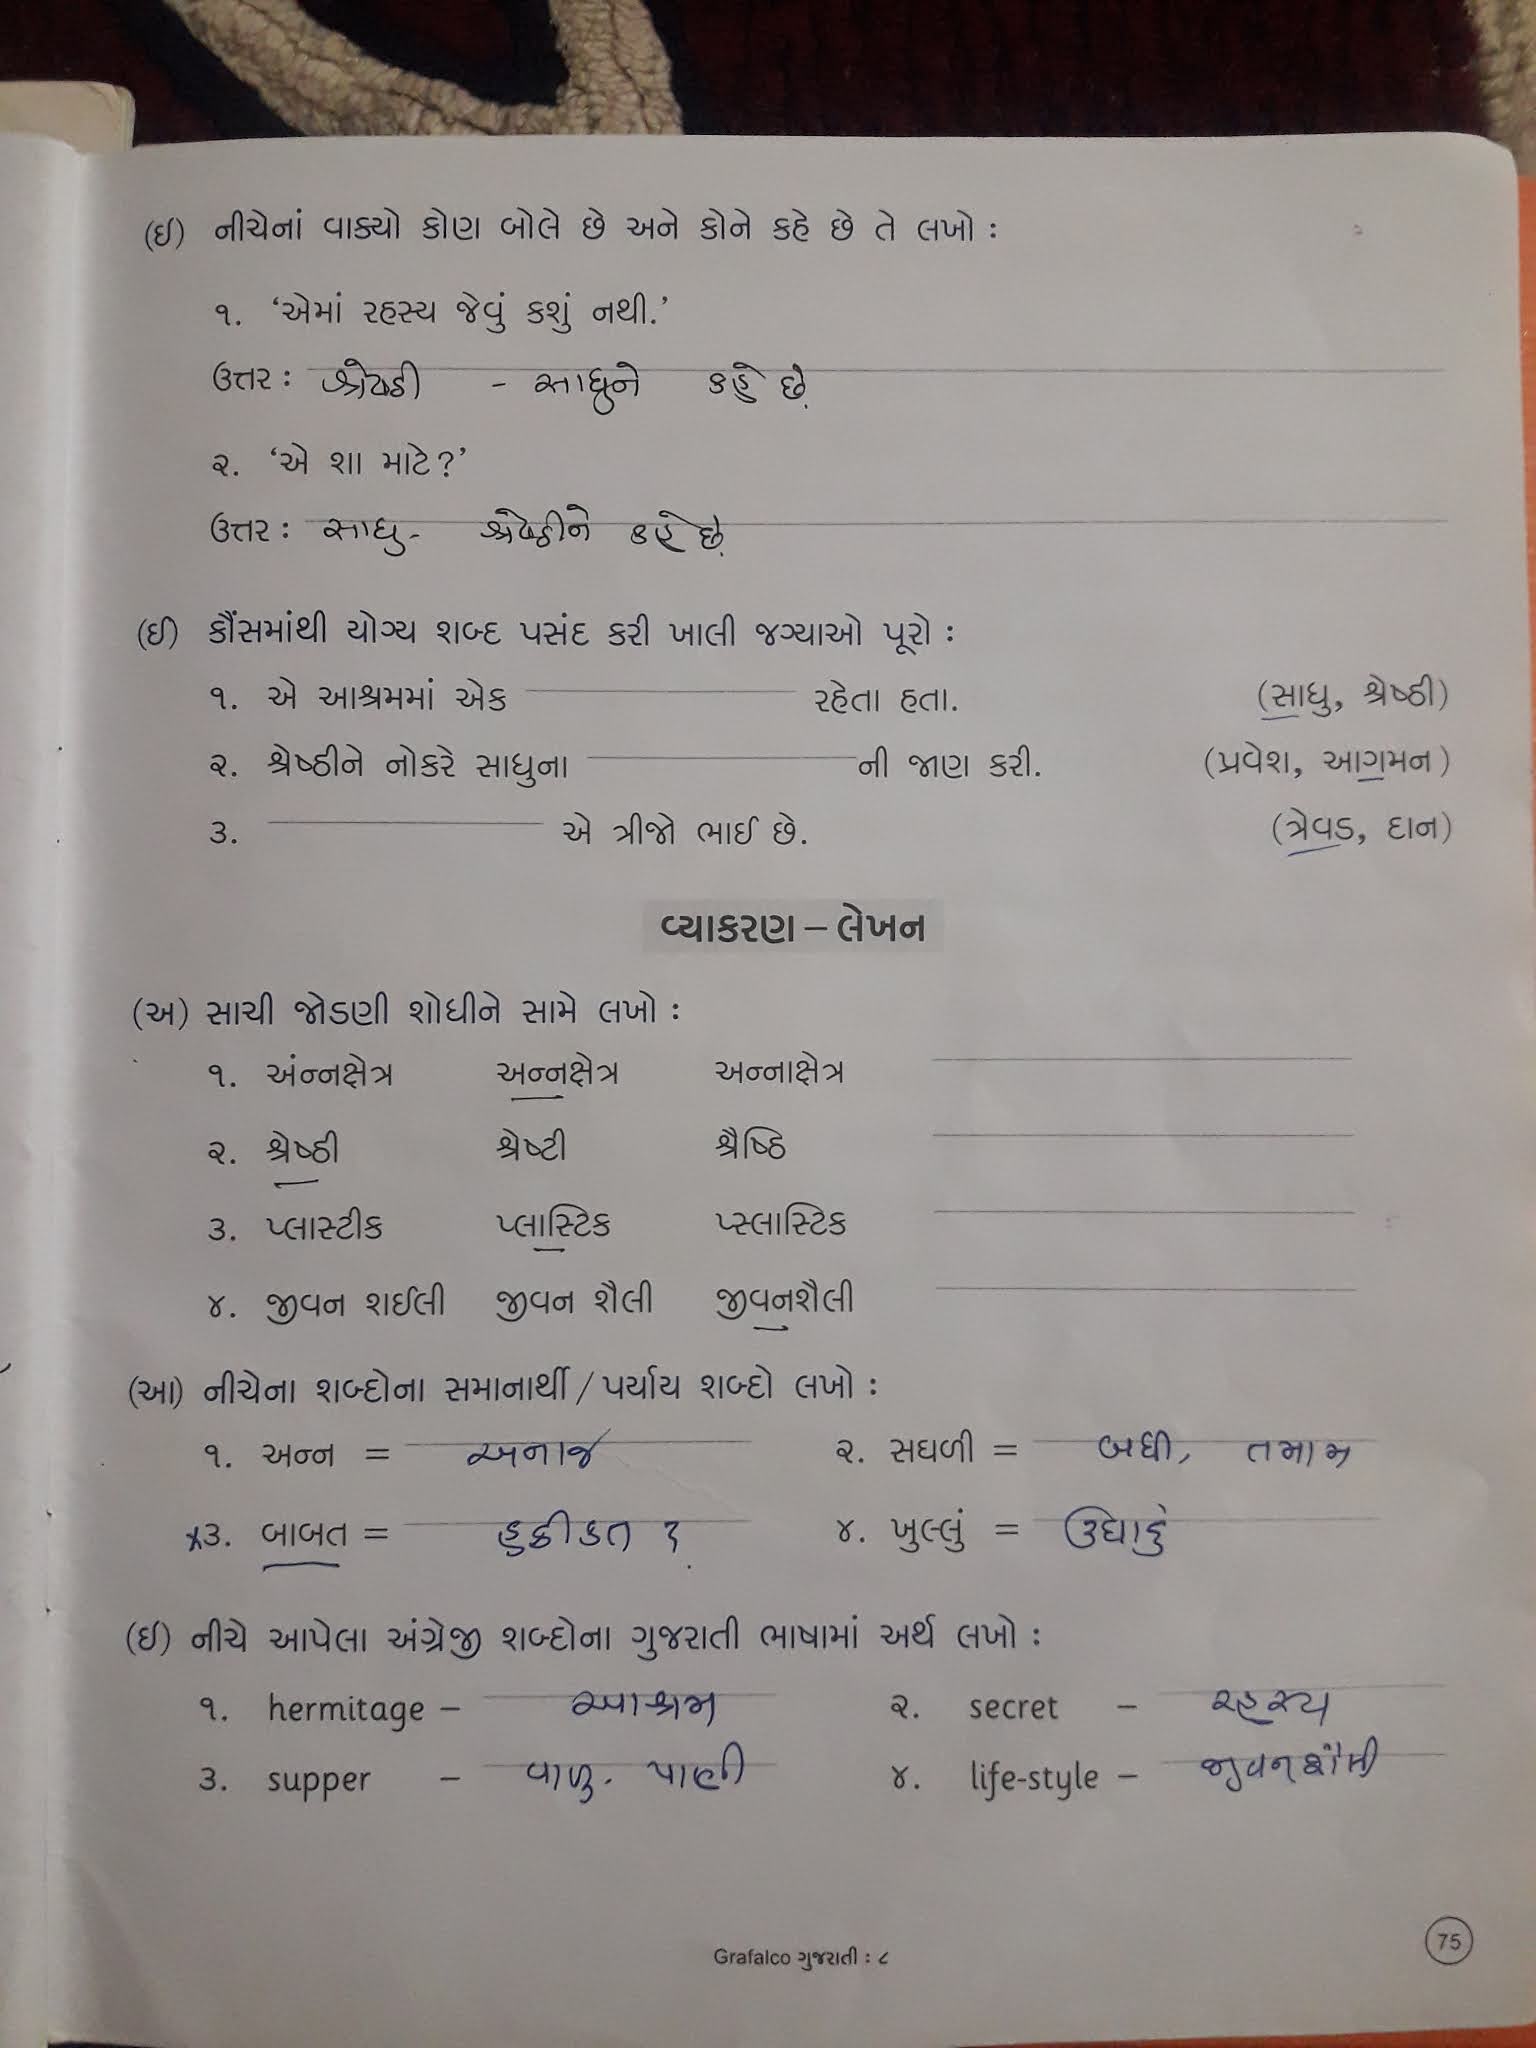 (ઇ) નીચેનાં વાક્યો કોણ બોલે છે અને કોને કહે છે તે લખો :
૧. ‘એમાં રહસ્ય જેવું કશું નથી.’
ઉત્તર : શ્રેષ્ઠી - સાધુને કહે છે.
૨. ‘એ શા માટે?’
ઉત્તર : સાધુ - શ્રેષ્ઠીને કહે છે.
(ઈ) કૌંસમાંથી યોગ્ય શબ્દ પસંદ કરી ખાલી જગ્યાઓ પૂરો :
૧. એ આશ્રમમાં એક રહેતા હતા. (સાધુ, શ્રેષ્ઠી)
૨. શ્રેષ્ઠીને નોકરે સાધુના ની જાણ કરી. (પ્રવેશ, આગમન)
૩. એ ત્રીજો ભાઈ છે. (ત્રેવડ, દાન)
વ્યાકરણ – લેખન
(અ) સાચી જોડણી શોધીને સામે લખો :
૧. અંન્નક્ષેત્ર અન્નક્ષેત્ર અન્નાક્ષેત્ર
૨. શ્રેષ્ઠી શ્રેષ્ટી શ્રૈષ્ઠિ
૩. પ્લાસ્ટીક પ્લાસ્ટિક પ્સ્લાસ્ટિક
૪. જીવન શઈલી જીવન શૈલી જીવનશૈલી
(આ) નીચેના શબ્દોના સમાનાર્થી / પર્યાય શબ્દો લખો :
૧. અન્ન = અનાજ ૨. સઘળી = બધી, તમામ
*૩. બાબત = હકીકત ? ૪. ખુલ્લું = ઉઘાડું
(ઇ) નીચે આપેલા અંગ્રેજી શબ્દોના ગુજરાતી ભાષામાં અર્થ લખો :
૧. hermitage – આશ્રમ ૨. secret – રહસ્ય
૩. supper – વાળુ - પાણી ૪. life-style – જીવનશૈલી
Grafalco ગુજરાતી : ૮
75